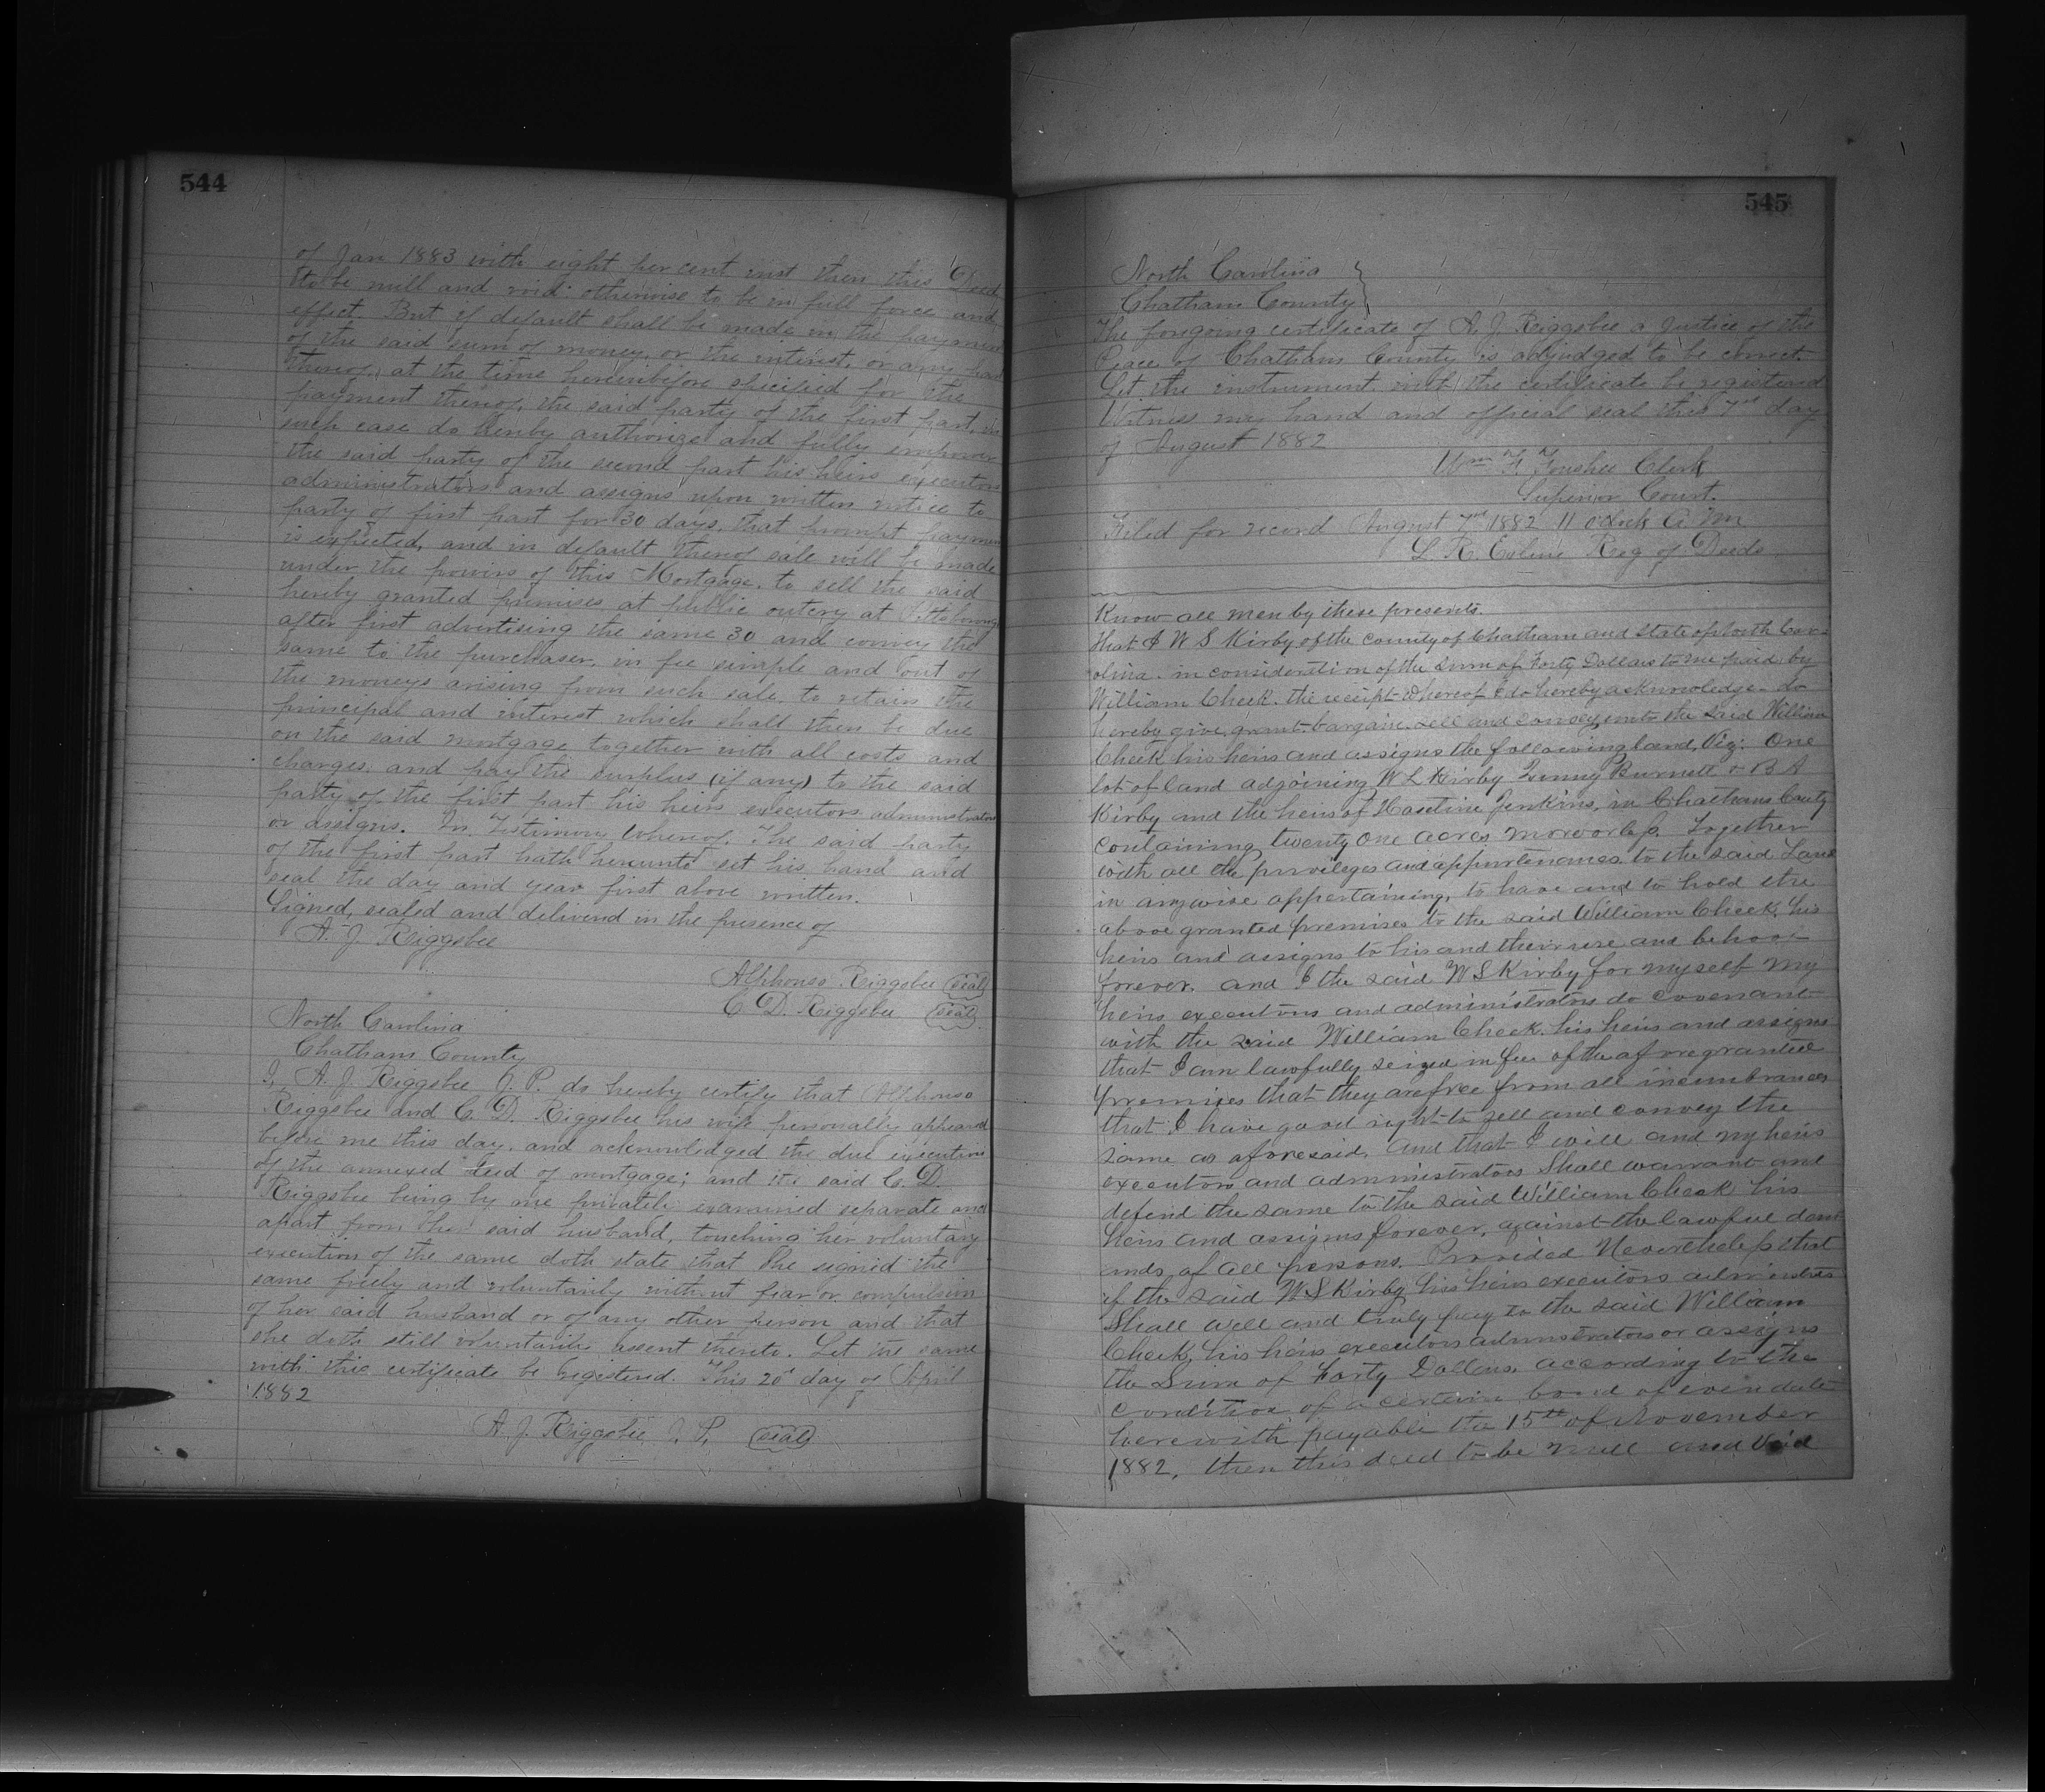 544
of Jan 1883 with eight per cent inst then this Deed
to be null and void: otherwise to be in full force and
effect. But if default shall be made in the payment
of the said sum of money, or the interest, or any part
thereof, at the time hereinbefore specified for the
payment thereof, the said party of the first part, in
such case do hereby authorize and fully empower
the said party of the second part his heirs executors
administrators and assigns upon written notice to
party of first part for 30 days, that prompt payment
is expected, and in default thereof sale will be made
under the powers of this Mortgage, to sell the said
hereby granted premises at public outcry at Pittsboro
after first advertising the same 30 and convey the
same to the purchaser, in fee simple and out of
the moneys arising from such sale, to retain the
principal and interest which shall then be due
on the said mortgage together with all costs and
charges, and pay the surplus (if any) to the said
party of the first part his heirs executors administrators
or assigns. In Testimony Whereof, The said party
of the first part hath hereunto set his hand and
seal the day and year first above written.
Signed, sealed and delivered in the presence of
A. J. Riggsbee
Alphonso Riggsbee (seal)
C. D. Riggsbee (seal)
North Carolina
Chatham County
I, A. J. Riggsbee J. P. do hereby certify that Alphonso
Riggsbee and C. D. Riggsbee his wife personally appeared
before me this day, and acknowledged the due execution
of the annexed deed of mortgage; and the said C. D.
Riggsbee being by me privately examined separate and
apart from her said husband, touching her voluntary
execution of the same doth state that she signed the
same freely and voluntarily without fear or compulsion
of her said husband or of any other person and that
she doth still voluntarily assent thereto. Let the same
with this certificate be registered. This 20 day of April
1882
A. J. Riggsbee J. P. (seal)
545
North Carolina
Chatham County
The foregoing certificate of A. J. Riggsbee a Justice of the
Peace of Chatham County is adjudged to be correct.
Let the instrument with the certificate be registered
Witness my hand and official seal this 7th day
of August 1882
Wm F. Foushee Clerk
Superior Court.
Filed for record August 7th 1882 11 oclock A. M
L R. Exline Reg of Deeds
Know all men by these presents.
that I W S Kirby of the county of Chatham and State of North Car-
olina. in consideration of the Sum of Forty Dollars to me paid by
William Cheek. the receipt whereof I do hereby acknowledge. do
hereby give, grant bargain. sell and convey unto the said William
Cheek his heirs and assigns the following land, Viz: One
lot of land adjoining W L Kirby Burnett & B A
Kirby and the heirs of Hasetine Jenkins, in Chatham County
containing twenty one acres more or less. Together
with all the privileges and appurtenances to the said Land
in anywise appertaining, to have and to hold the
above granted premises to the said William Cheek, his
heirs and assigns to his and their use and behoof
forever. and I the said W S Kirby for myself my
heirs executors and administrators do covenant
with the said William Cheek. his heirs and assigns
that I am lawfully seized in fee of the aforegranted
premises that they are free from all incumbrances
that I have good right to sell and convey the
same as aforesaid, and that I will and my heirs
executors and administrators Shall warrant and
defend the same to the said William Cheek his
heirs and assigns forever, against the lawful dem
ands of all persons. Provided Nevertheless that
if the said W S Kirby his heirs executors
Shall well and truly pay to the said William
Cheek, his heirs executors administrators or assigns
the Sum of Forty Dollars, according to the
condition of a certain bond of even date
herewith payable the 15th of November
1882, then this deed to be null and Void